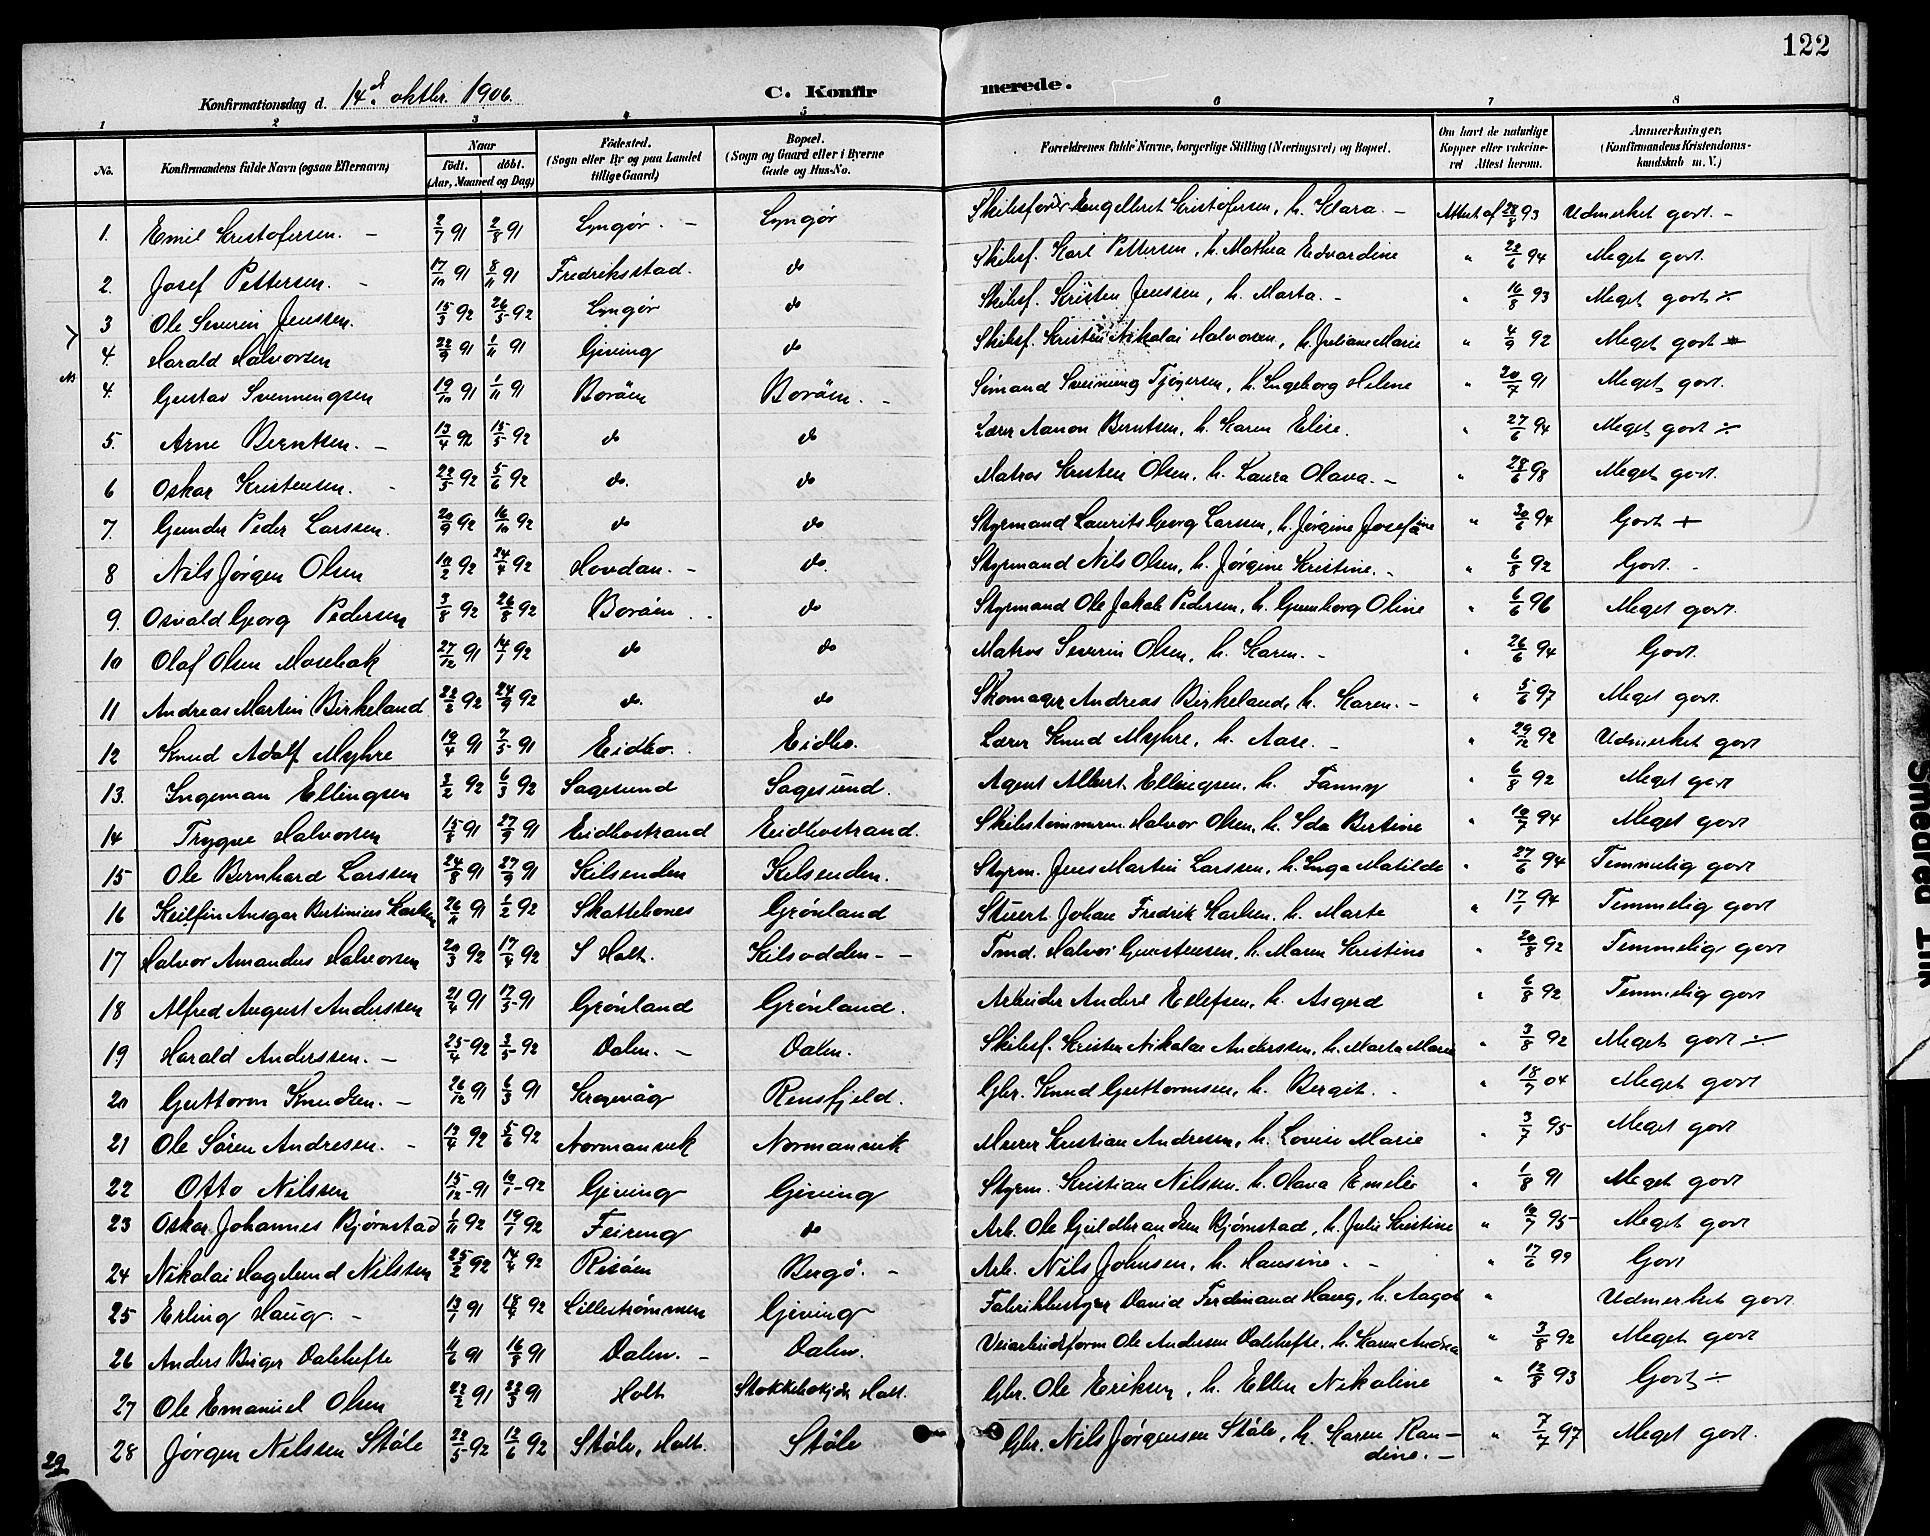 122
Konfirmationsdag d. 14d oktbr. 1906. C. Konfirmerede.
1 2 3 4 5 6 7 8
No. Konfirmandens fulde Navn (ogsaa Efternavn) Naar født. døbt. (Aar, Maaned og Dag) Fødested. (Sogn eller By og paa Landet tillige Gaard) Bopæl. (Sogn og Gaard eller i Byerne Gade og Hus-No. Forældrenes fulde Navne, borgerlige Stilling (Næringsvei) og Bopæl. Om havt de naturlige Kopper eller vakcineret Attest herom. Anmærkninger. (Konfirmandens Kristendomskundskab m. V.)
1. Emil Kristofersen. - 2/7 91 2/8 91 Lyngør. - Lyngør Skibsfører Engelbret Kristofersen, h. Klara. - Attest af 22/8 93 Udmerket godt. -
2. Josef Pettersen. - 17/10 91 8/11 91 Fredriksstad. do Skibsf. Karl Pettersen, h. Mathea Edvardine " 22/6 94 Meget godt.
3 Ole Severin Jenssen. 15/3 92 26/5 92 Lyngør do Skibsf. Kristen Jenssen, h. Marta. - " 16/8 93 Meget godt ÷
4. Harald Halvorsen 22/9 91 1/11 91 Giving do Skibsf. Kristen Nikolai Halvorsen, h. Juliane Marie " 4/9 92 Meget godt
4. Gustav Svenningsen 19/10 91 1/11 91 Borøen Borøen. - Sömand Svenning Tjøgersen, h. Ingeborg Helene " 20/7 91 Meget godt.
5. Arne Berntsen. - 13/4 92 15/5 92 do do Lærer Aanon Berntsen, h. Karen Elise. " 27/6 94 Meget godt ÷
6 Oskar Kristensen. - 22/5 92 5/6 92 do. do Matros Kristen Olsen, h. Laura Olava. - " 28/6 98 Meget godt.
7. Gunder Peder Larssen. 20/9 92 16/10 92 do do Styrmand Laurits Georg Larssen, h. Jørgine Josefine " 30/6 94 Godt +
8 Nils Jørgen Olsen 10/2 92 24/4 92 Hovdan. - do. Styrmand Nils Olsen, h. Jørgine Kristine. - " 6/8 92 Godt. -
9. Osvald Georg Pedersen 3/8 92 26/8 92 Borøen. do Styrmand Ole Jakob Pedersen, h. Gunborg Oline " 6/6 96 Meget godt.
10 Olaf Olsen Mosebak 27/12 91 14/1 92 do do Matros Severin Olsen, h. Karen. - " 26/6 94 Godt.
11 Andreas Martin Birkeland 22/6 92 24/9 92 do. do Skomager Andreas Birkeland, h. Karen. - " 5/6 97 Meget godt.
12 Knud Adolf Myhre 19/4 91 7/5 91 Eidbo. Eidbo. Lærer Knud Myhre, h. Aase. - " 29/12 92 Udmerket godt
13. Ingeman Ellingsen 3/2 92 6/3 92 Sagesund Sagesund. Agent Albert Ellingsen. h. Fanny " 6/8 92 Meget godt
14 Trygve Halvorsen 15/8 91 27/9 91 Eidbostrand Eidbostrand. Skibstømmerm. Halvor Olsen, h. Ida Bertine " 10/7 94 Meget godt
15 Ole Bernhard Larssen 24/8 91 27/9 91 Kilsenden Kilsenden. Styrm. Jens Martin Larssen, h. Inga Matilde " 27/6 94 Temmelig godt
16 Keilfin Ansgar Bertinius Karlsen 26/11 91 1/2 92 Skattebones Grønland Stuert Johan Fredrik Karlsen. h. Marte " 17/1 94 Temmelig godt
17 Halvor Amandus Halvorsen 20/3 92 17/4 92 S Holt. Kilsodden - - Tmd. Halvor Gunstensen. h. Maren Kristine " 20/8 92 Temmelig godt
18 Alfred August Anderssen 21/4 91 17/5 91 Grønland Grønland. Arbeider Anders Ellefsen, h. Asgerd " 6/8 92 Temmelig godt
19 Harald Anderssen. - 25/4 92 3/5 92 Dalen. - Dalen. Skibsf. Kristen Nikolai Anderssen, h. Marta Marie " 3/8 92 Meget godt ÷
20 Guttorm Knudsen. - 26/12 91 6/3 91 Kragevåg Rensfjeld. Gbr. Knud Guttormsen, h. Bergit. - " 18/7 04 Meget godt
21 Ole Søren Andresen. - 13/4 92 5/6 92 Normansvik Normansvik Murer Kristian Andresen, h. Lovise Marie " 3/7 95 Meget godt
22 Otto Nilssen 15/12 91 10/1 92 Giving Giving Styrm. Kristian Nilssen. h. Olava Emelie " 1/8 91 Meget godt
23 Oskar Johannes Bjørnstad 1/11 92 19/7 92 Feiring do Arb. Ole Guldbrandsen Bjørnstad, h. Julie Kristine " 10/7 95 Meget godt
24 Nikolai Hagelund Nilssen 25/2 92 14/4 92 Risøen Bergø. - Arb. Nils Johnsen, h. Hansine. - " 17/6 99 Godt
25 Erling Haug. - 13/7 91 18/9 92 Lillestrømmen Giving Fabrikbestyrer David Ferdinand Haug, h. Aagot " Udmerket godt.
26 Anders Birger Dalehefte 11/6 91 16/8 91 Dalen. - Dalen. Veiarbeidsform. Ole Andersen Dalehefte, h. Karen Andrea " 3/8 92 Meget godt
27 Ole Emanuel Olsen 22/2 91 22/3 91 Holt Holt. Gbr. Ole Eriksen, h. Ellen Nikoline " 12/8 93 Godt ÷
28 Jørgen Nilssen Støle 22/5 92 12/6 92 Støle, Holt. Støle Gbr. Nils Jørgensen Støle, h. Karen Randine. - " 7/7 97 Meget godt.
29